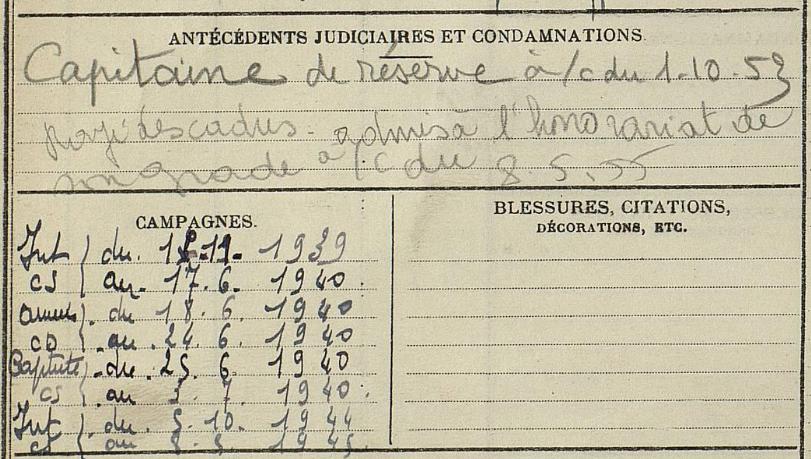 ANTÉCÉDENTS JUDICIAIRES ET CONDAMNATIONS
Capitaine de réserve à /c du 1.10.53
rayé des cadres - admis à l'honorariat de
son grade à /c du 8.5.55
CAMPAGNES.
Int } du 1 .11. 1939
CS } au 17.6. 1940
du 18.6. 1940
CD } au 24.6. 1940
Captivité } du 25.6. 1940
CS } au 3.7. 1940
Int } du 5.10. 1944
CS } au 8.5. 1945
BLESSURES, CITATIONS,
DÉCORATIONS, ETC.